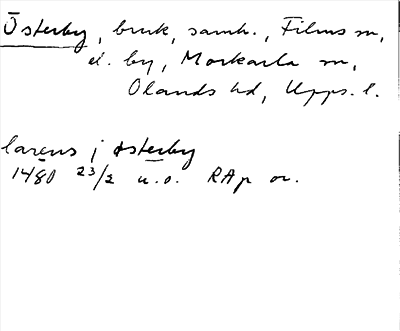 Österby, bruk, samh., Films sn,
el. by, Morkarla sn,
Olands hd, Upps. l.
larens j østerby
1480 23/2 u.o. RAp or.